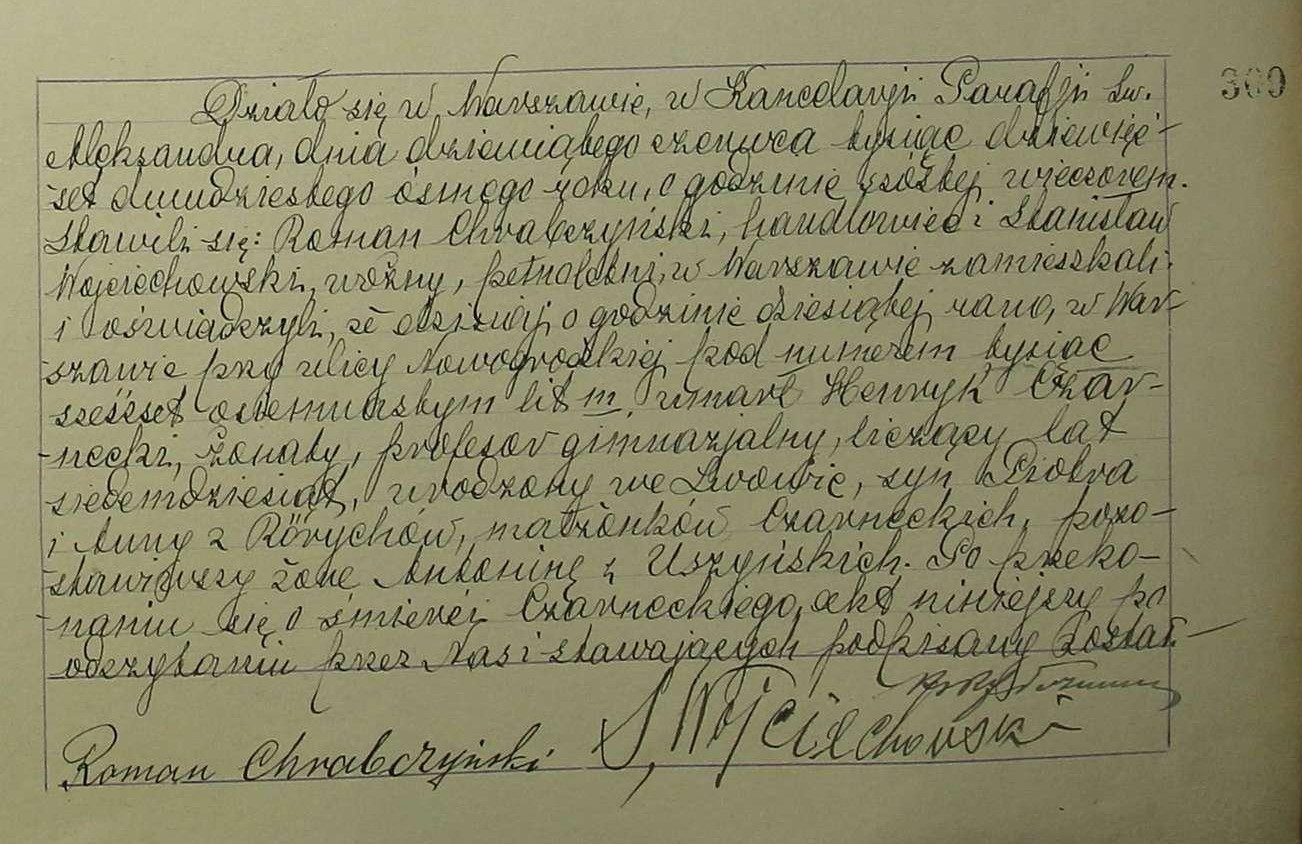 309
Działo się w Warszawie, w Kancelaryji Parafji Św.
Aleksandra, dnia dziewiątego czerwca tysiąc dziewięć-
-set dwudziestego ósmego roku, o godzinie szóstej wieczorem.
Stawili się: Roman Chrabczyński, handlowiec i Stanisław
Wojciechowski, woźny, pełnoletni, w Warszawie zamieszkali
i oświadczyli, że dzisiaj o godzinie dziesiątej rano, w War-
-szawie przy ulicy Nowogrodzkiej pod numerem tysiąc
sześćset lit m, umarł Henryk Czar-
-necki, żonaty, profesor gimnazjalny, liczący lat
siedemdziesiąt, urodzony we Lwowie, syn Piotra
i Anny z Rörychów, małżonków Czarneckich, pozo-
-stawiwszy żonę Antoninę z Uszyńskich. Po przeko-
-naniu się o śmierci Czarneckiego, akt niniejszy po
odczytaniu przez Nas i stawających podpisany został.—
Roman Chrabczyński S. Wojciechowski